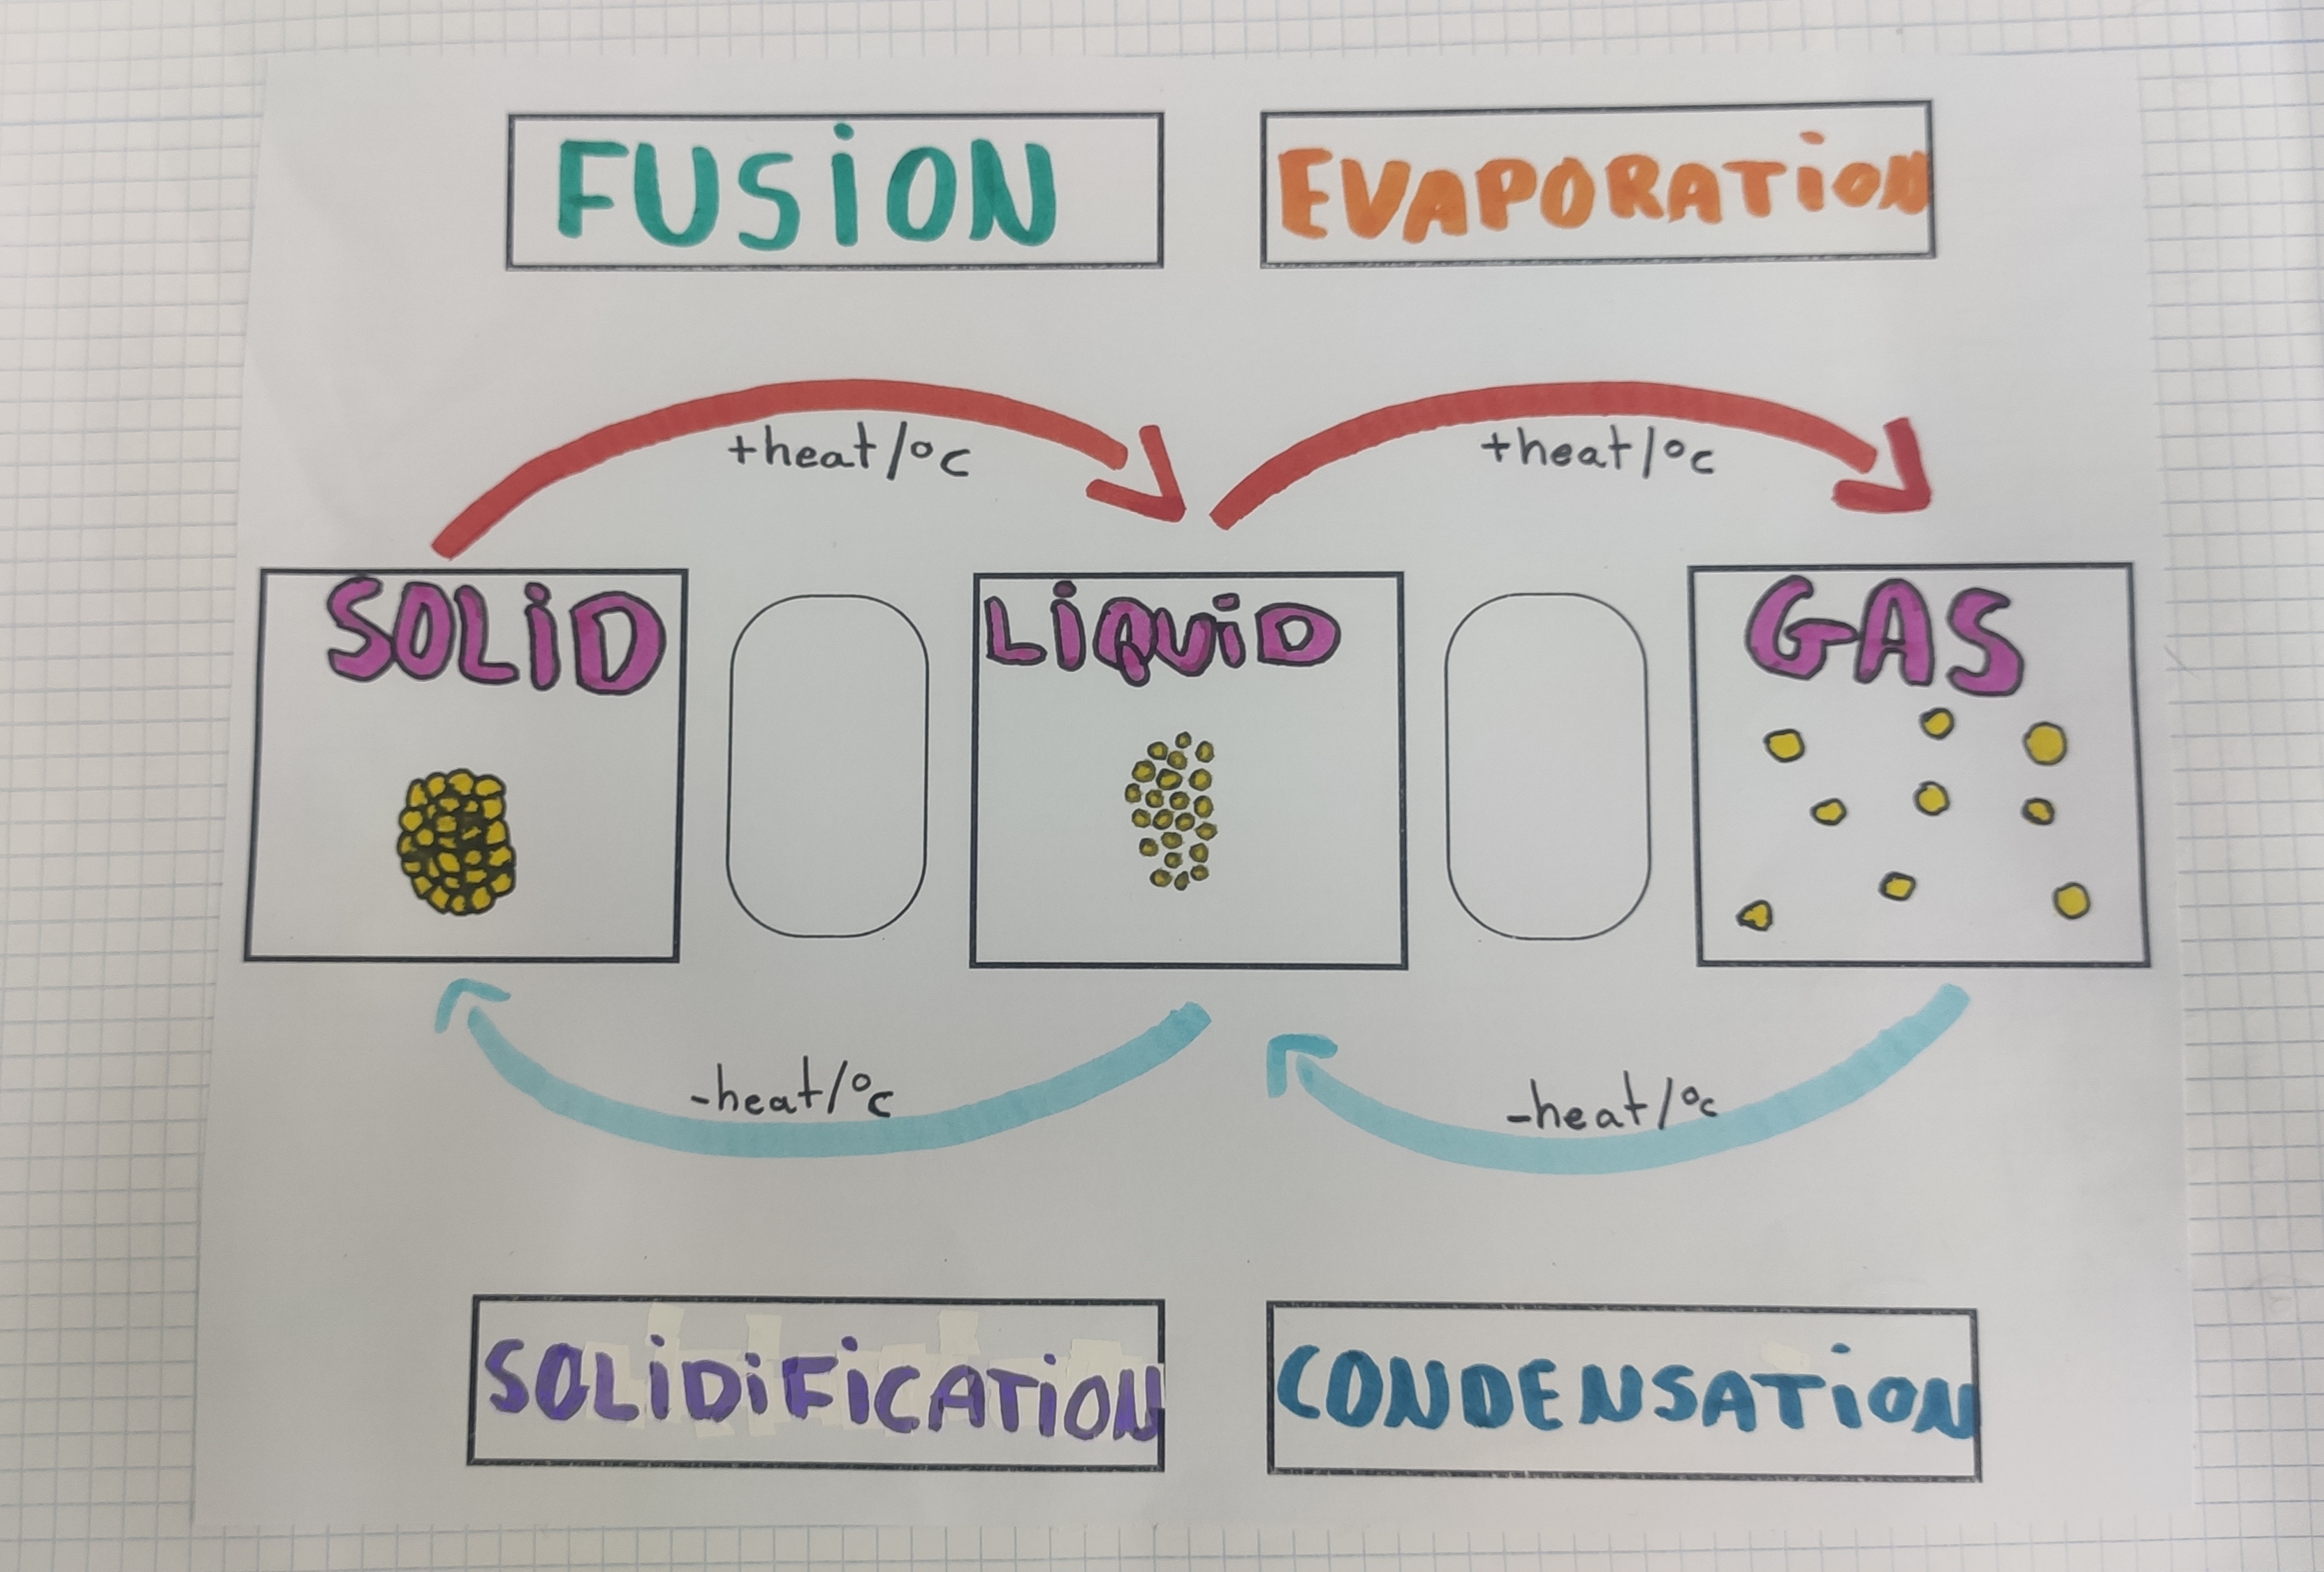 FUSiON
EVAPORATiON
+heat/°c
+heat/°c
SOLiD
LiQUiD
GAS
-heat/°c
-heat/°c
SOLiDiFiCATiON
CONDENSATiON